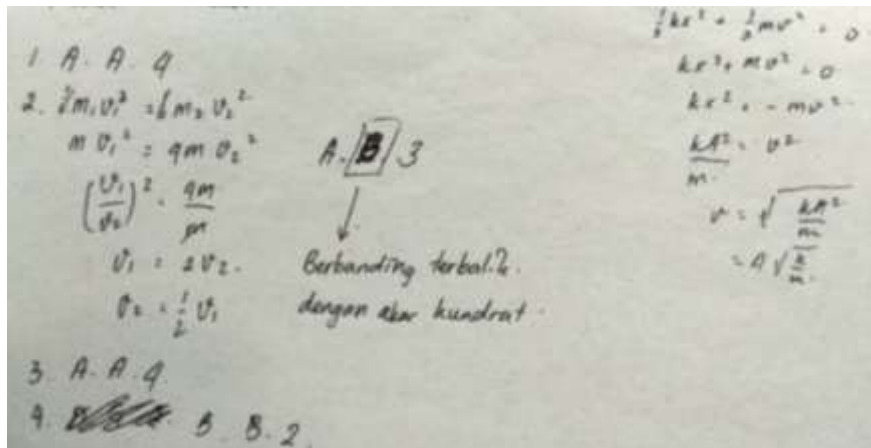 1 A. A. 4
2. ½m₁v₁² = ½ m₂ v₂²
m v₁² = 4m v₂²
(v₁/v₂)² = 4m/m
v₁ = 2v₂.
v₂ = ½ v₁
A. B 3
↓
Berbanding terbalik.
dengan akar kundrat.
3. A. A. 4
4. B. B. 2.
½kx² + ½mv² = 0
kx² + mv² = 0
kx² = -mv²
kA²/m = v²
v = √(kA²/m)
= A√(k/m)